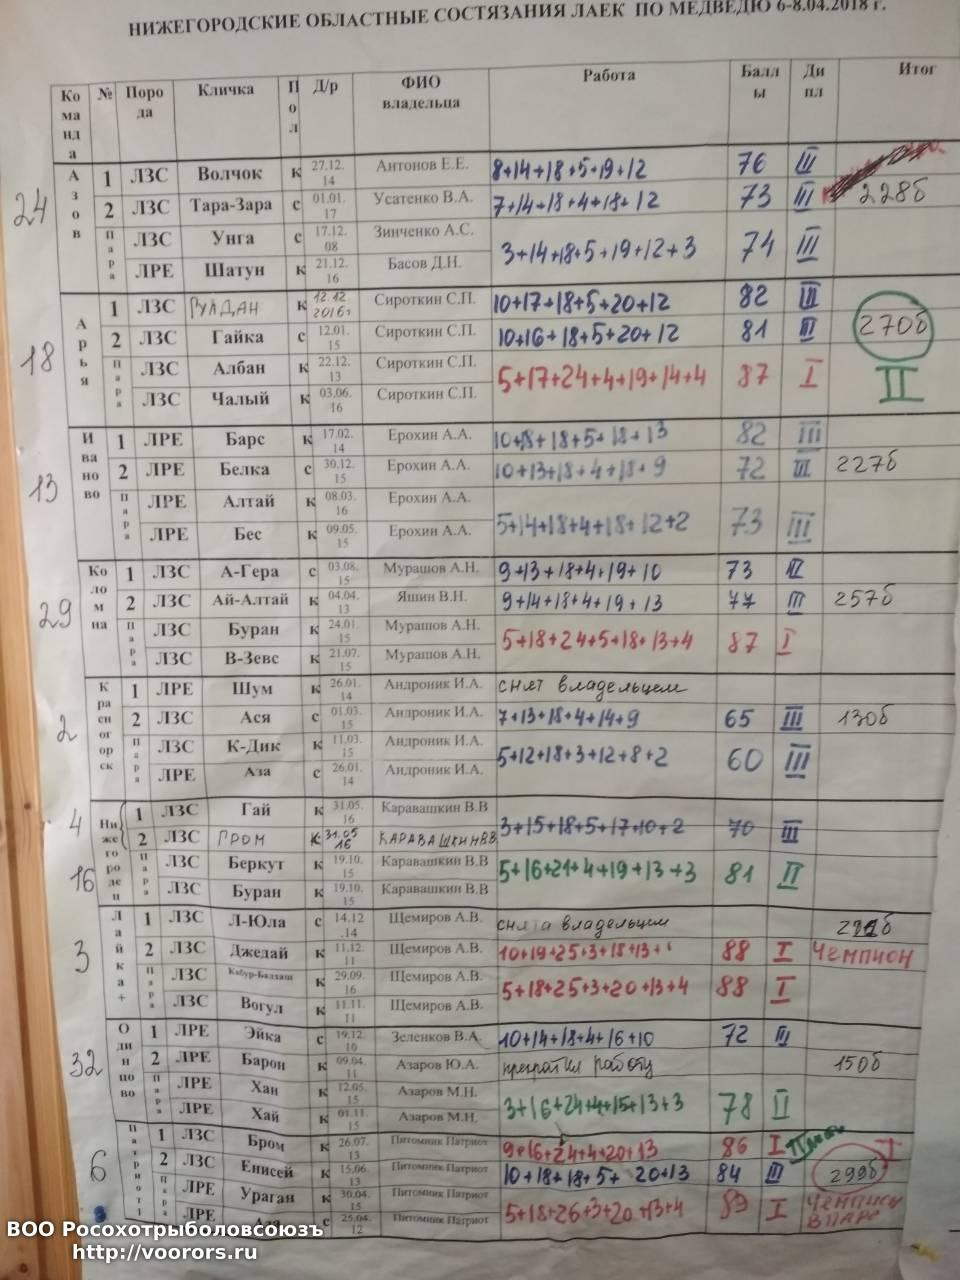 НИЖЕГОРОДСКИЕ ОБЛАСТНЫЕ СОСТЯЗАНИЯ ЛАЕК ПО МЕДВЕДЮ 6-8.04.2018 г.
Команда № Порода Кличка Пол Д/р ФИО владельца Работа Баллы Дипл Итог
24 Азов 1 ЛЗС Волчок к 27.12.14 Антонов Е.Е. 8+14+18+5+19+12 76 III
2 ЛЗС Тара-Зара с 01.01.17 Усатенко В.А. 7+14+18+4+18+12 73 III 228б
пара ЛЗС Унга с 17.12.08 Зинченко А.С. 3+14+18+5+19+12+3 74 III
ЛРЕ Шатун к 21.12.16 Басов Д.Н.
18 Арья 1 ЛЗС РУЛДАН к 12.12.2016г Сироткин С.П. 10+17+18+5+20+12 82 III
2 ЛЗС Гайка с 12.01.15 Сироткин С.П. 10+16+18+5+20+12 81 III 270б
пара ЛЗС Албан к 22.12.13 Сироткин С.П. 5+17+24+4+19+14+4 87 I II
ЛЗС Чалый к 03.06.16 Сироткин С.П.
13 Иваново 1 ЛРЕ Барс к 17.02.14 Ерохин А.А. 10+18+18+5+18+13 82 III
2 ЛРЕ Белка с 30.12.15 Ерохин А.А. 10+13+18+4+18+9 72 III 227б
пара ЛРЕ Алтай к 08.03.16 Ерохин А.А. 5+14+18+4+18+12+2 73 III
ЛРЕ Бес к 09.05.15 Ерохин А.А.
29 Коломна 1 ЛЗС А-Гера с 03.08.15 Мурашов А.Н. 9+13+18+4+19+10 73 III
2 ЛЗС Ай-Алтай к 04.04.13 Яшин В.Н. 9+14+18+4+19+13 77 III 257б
пара ЛЗС Буран к 24.01.15 Мурашов А.Н. 5+18+24+5+18+13+4 87 I
ЛЗС В-Зевс к 21.07.15 Мурашов А.Н.
2 Красногорск 1 ЛРЕ Шум к 26.01.14 Андроник И.А. снят владельцем
2 ЛЗС Ася с 01.03.15 Андроник И.А. 7+13+18+4+14+9 65 III 130б
пара ЛЗС К-Дик к 11.03.15 Андроник И.А. 5+12+18+3+12+8+2 60 III
ЛРЕ Аза с 26.01.14 Андроник И.А.
4 Нижегородец 1 ЛЗС Гай к 31.05.16 Каравашкин В.В 3+15+18+5+17+10+2 70 III
2 ЛЗС ГРОМ к 31.05 16 КАРАВАШКИН В.В.
16 пара ЛЗС Беркут к 19.10.15 Каравашкин В.В 5+16+21+4+19+13+3 81 II
ЛЗС Буран к 19.10.15 Каравашкин В.В
3 Лайка+ 1 ЛЗС Л-Юла с 14.12.14 Щемиров А.В. снята владельцем
2 ЛЗС Джедай к 11.12.11 Щемиров А.В. 88 I Чемпион
пара ЛЗС к 29.09.16 Щемиров А.В. 5+18+25+3+20+13+4 88 I
ЛЗС Вогул к 11.11.11 Щемиров А.В.
32 Одинцово 1 ЛРЕ Эйка с 19.12.10 Зеленков В.А. 10+14+18+4+16+10 72 III
2 ЛРЕ Барон к 09.04.11 Азаров Ю.А. прекратил работу 150б
пара ЛРЕ Хан к 12.05.15 Азаров М.Н. 3+16+24+4+15+13+3 78 II
ЛРЕ Хай к 01.11.15 Азаров М.Н.
6 Патриот 1 ЛЗС Бром к 26.07.13 Питомник Патриот 9+16+24+4+20+13 86 I I
2 ЛЗС Енисей к 15.06.13 Питомник Патриот 10+18+18+5+20+13 84 III 299б
пара ЛРЕ Ураган к 30.04.15 Питомник Патриот 5+18+26+3+20+13+4 89 I Чемпион в паре
ЛРЕ Аза с 25.04.12 Питомник Патриот
ВОО Росохотрыболовсоюзъ
http://voorors.ru